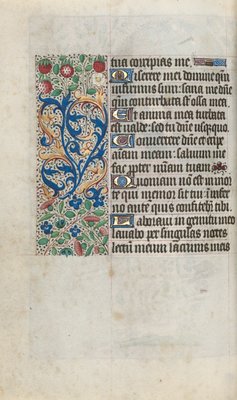 tua corripias me.
Miserere mei domine qm̄
infirmus sum: sana me dn̄e
qm̄ conturbata st̄ ossa mea.
Et anima mea turbata
est ualde: sed tu dn̄e usq̄quo.
Conuertere dn̄e et eripe
aiam meam: saluum me
fac ꝓpter mīam tuam
Quoniam nō est in mor
te qui memor sit tui: ī infer
no autē quis confitebit̄ tibi.
Laboraui in gemitu meo
lauabo per singulas noctes
lectū meum lacrimis meis